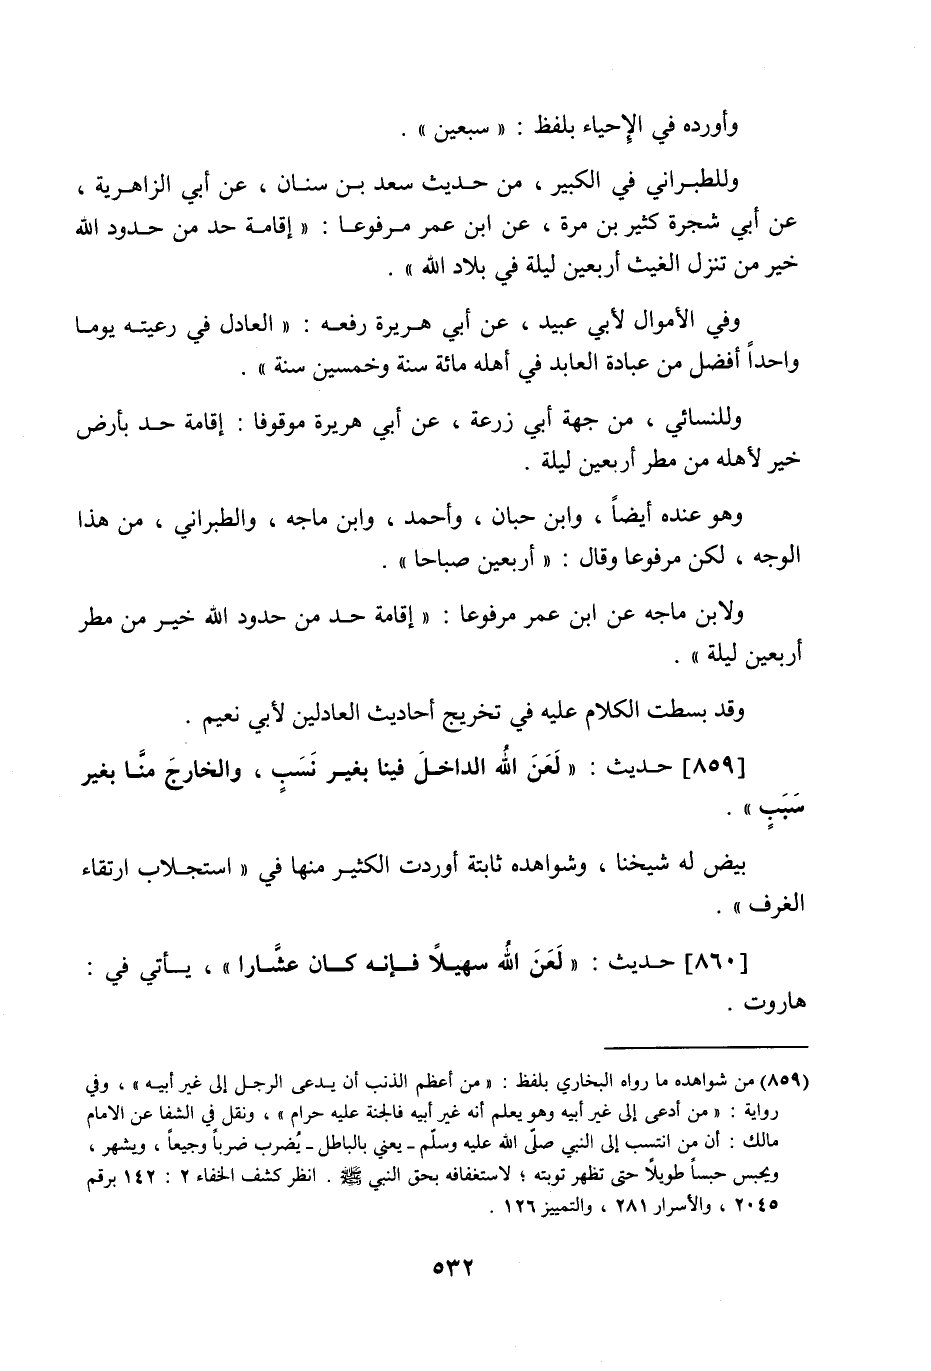 وأورده في الإحياء بلفظ : « سبعين » .
وللطبراني في الكبير ، من حديث سعد بن سنان ، عن أبي الزاهرية ،
عن أبي شجرة كثير بن مرة ، عن ابن عمر مرفوعا : « إقامة حد من حدود الله
خير من تنزل الغيث أربعين ليلة في بلاد الله » .
وفي الأموال لأبي عبيد ، عن أبي هريرة رفعه : « العادل في رعيته يوما
واحداً أفضل من عبادة العابد في أهله مائة سنة وخمسين سنة » .
وللنسائي ، من جهة أبي زرعة ، عن أبي هريرة موقوفا : إقامة حد بأرض
خير لأهله من مطر أربعين ليلة .
وهو عنده أيضاً ، وابن حبان ، وأحمد ، وابن ماجه ، والطبراني ، من هذا
الوجه ، لكن مرفوعا وقال : « أربعين صباحا » .
ولابن ماجه عن ابن عمر مرفوعا : « إقامة حد من حدود الله خير من مطر
أربعين ليلة » .
وقد بسطت الكلام عليه في تخريج أحاديث العادلين لأبي نعيم .
[٨٥٩] حديث : « لَعَنَ اللهُ الداخلَ فينا بغير نَسَبٍ ، والخارجَ منَّا بغير
سَبَبٍ » .
بيض له شيخنا ، وشواهده ثابتة أوردت الكثير منها في « استجلاب ارتقاء
الغرف » .
[٨٦٠] حديث : « لَعَنَ اللهُ سهيلاً فإنه كان عشَّارا » ، يأتي في :
هاروت .
(٨٥٩) من شواهده ما رواه البخاري بلفظ : « من أعظم الذنب أن يدعى الرجل إلى غير أبيه » ، وفي
رواية : « من أدعى إلى غير أبيه وهو يعلم أنه غير أبيه فالجنة عليه حرام » ، ونقل في الشفا عن الامام
مالك : أن من انتسب إلى النبي صلّى الله عليه وسلّم ـ يعني بالباطل ـ يُضرب ضرباً وجيعاً ، ويشهر ،
ويحبس حبساً طويلاً حتى تظهر توبته ؛ لاستغفافه بحق النبي ﷺ . انظر كشف الخفاء ٢ : ١٤٢ برقم
٢٠٤٥ ، والأسرار ٢٨١ ، والتمييز ١٢٦ .
٥٣٢